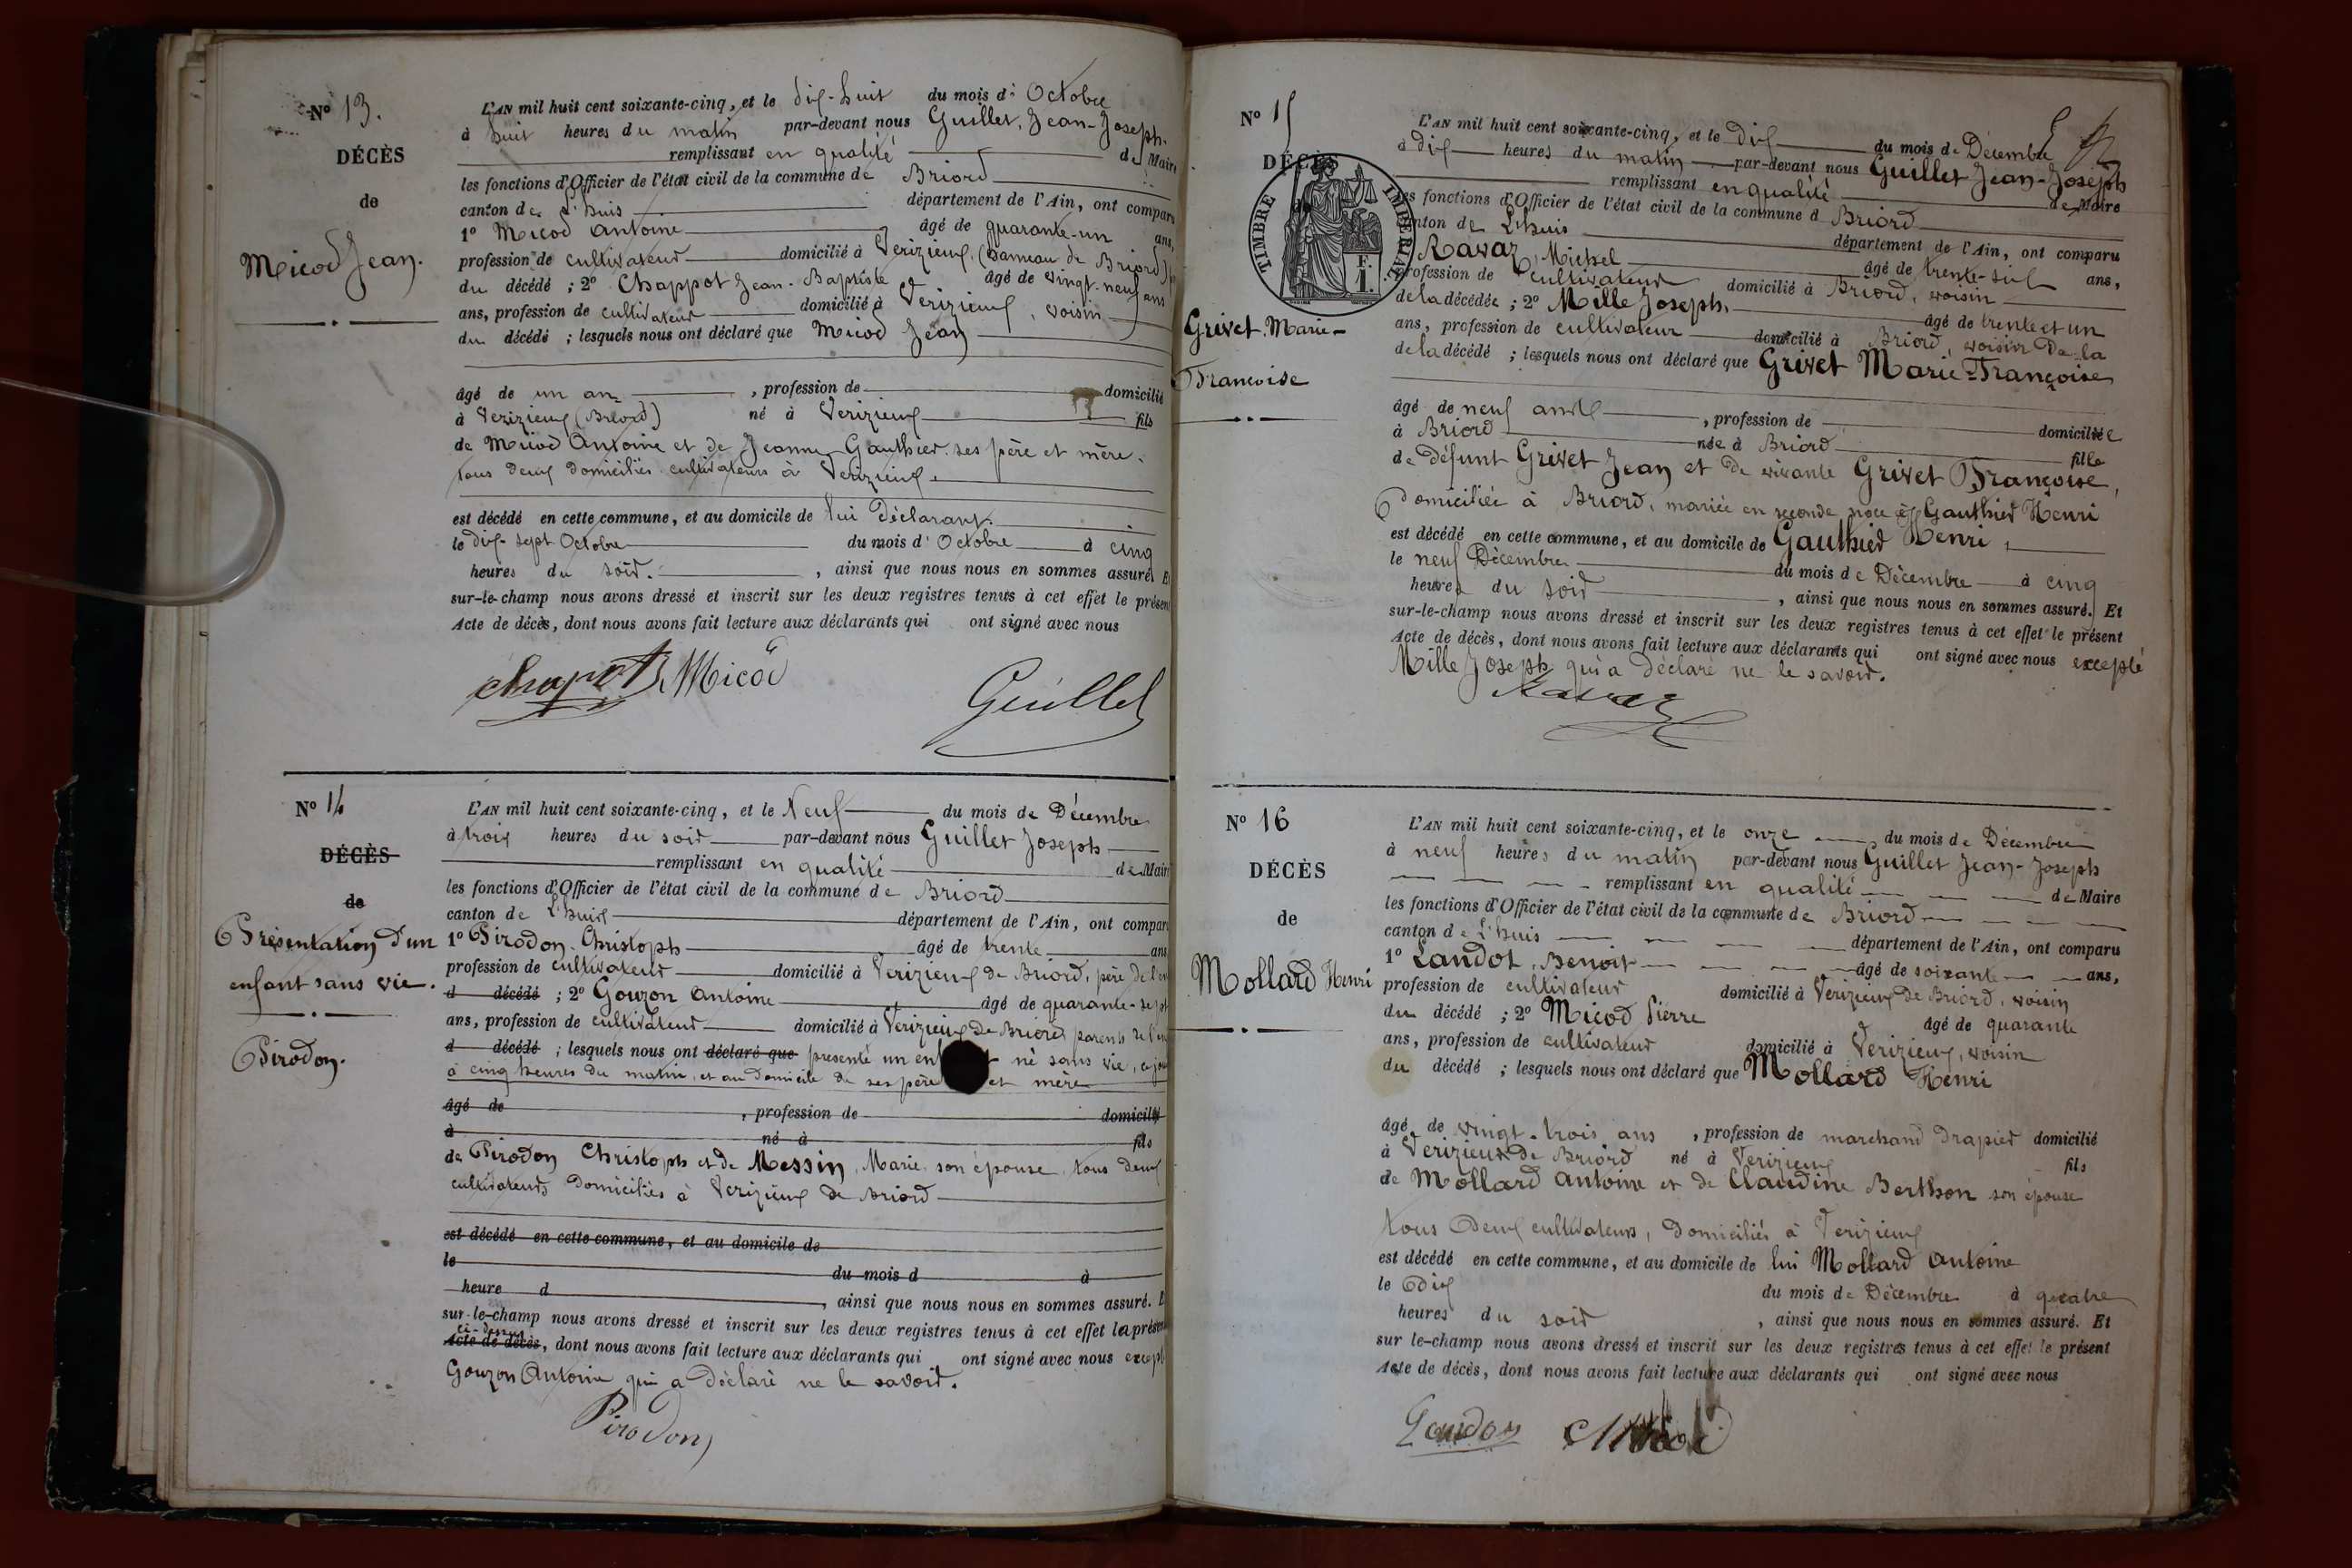 N° 13.
DÉCÈS
de
Micod Jean.
L'AN mil huit cent soixante-cinq, et le dix-huit du mois d' Octobre
à huit heures du matin par-devant nous Guillet, Jean-Joseph.
remplissant en qualité de Maire
les fonctions d'Officier de l'état civil de la commune de Briord
canton de L'huis département de l'Ain, ont comparu
1° Micod Antoine âgé de quarante-un ans,
profession de cultivateur domicilié à Verizieux, (hameau de Briord)
du décédé ; 2° Chappot Jean-Baptiste âgé de vingt-neuf ans
ans, profession de cultivateur domicilié à Verizieux, voisin
du décédé ; lesquels nous ont déclaré que Micod Jean
âgé de un an , profession de domicilié
à Verizieux (Briord) né à Verizieux fils
de Micod Antoine et de Jeanne Gauthier ses père et mère.
tous deux domiciliés cultivateurs à Verizieux.
est décédé en cette commune, et au domicile de lui déclarant.
le dix-sept Octobre du mois d' Octobre à cinq
heures du soir. , ainsi que nous nous en sommes assuré. Et
sur-le-champ nous avons dressé et inscrit sur les deux registres tenus à cet effet le présent
Acte de décès, dont nous avons fait lecture aux déclarants qui ont signé avec nous
chapot Micod
Guillet
N° 14
DÉCÈS
de
Présentation d'un
enfant sans vie.
Pirodon.
L'AN mil huit cent soixante-cinq, et le Neuf du mois de Décembre
à trois heures du soir par-devant nous Guillet Joseph
remplissant en qualité de Maire
les fonctions d'Officier de l'état civil de la commune de Briord
canton de L'huis département de l'Ain, ont comparu
1° Pirodon Christoph âgé de trente ans
profession de cultivateur domicilié à Verizieux de Briord, père de l'en
d décédé ; 2° Gouzon Antoine âgé de quarante-sept
ans, profession de cultivateur domicilié à Verizieux de Briord parents de l'en
d décédé ; lesquels nous ont déclaré que présenté un en t né sans vie, ce jour
à cinq heures du matin, et au domicile de ses père et mère
âgé de , profession de domicilié
à né à fils
de Pirodon Christoph et de Messin, Marie, son épouse, tous deux
cultivateurs domiciliés à Verizieux de Briord
est décédé en cette commune, et au domicile de
le du mois d à
heure d , ainsi que nous nous en sommes assuré. E
sur-le-champ nous avons dressé et inscrit sur les deux registres tenus à cet effet le présent
ci-dessus
Acte de décès, dont nous avons fait lecture aux déclarants qui ont signé avec nous except
Gouzon Antoine qui a déclaré ne le savoir.
Pirodon
N° 15
DÉCÈS
TIMBRE IMPÉRIAL
F.
1.
Grivet Marie-
Françoise
L'AN mil huit cent soixante-cinq, et le Dix du mois de Décembre
à dix heures du matin par-devant nous Guillet Jean-Joseph
remplissant en qualité de Maire
les fonctions d'Officier de l'état civil de la commune d Briord
canton de L'huis département de l'Ain, ont comparu
Ravaz, Michel âgé de trente-six ans,
profession de cultivateur domicilié à Briord, voisin
de la décédée ; 2° Mille Joseph, âgé de trente et un
ans, profession de cultivateur domicilié à Briord, voisin de la
de la décédé ; lesquels nous ont déclaré que Grivet Marie-Françoise
âgé de neuf ans , profession de domiciliée
à Briord née à Briord fille
de défunt Grivet Jean et de vivante Grivet Françoise,
domiciliée à Briord, mariée en seconde noce à Gauthier Henri
est décédé en cette commune, et au domicile de Gauthier Henri,
le neuf Décembre du mois de Décembre à cinq
heures du soir , ainsi que nous nous en sommes assuré. Et
sur-le-champ nous avons dressé et inscrit sur les deux registres tenus à cet effet le présent
Acte de décès, dont nous avons fait lecture aux déclarants qui ont signé avec nous excepté
Mille Joseph qui a déclaré ne le savoir.
Ravaz
N° 16
DÉCÈS
de
Mollard Henri
L'AN mil huit cent soixante-cinq, et le onze du mois de Décembre
à neuf heures du matin par-devant nous Guillet Jean-Joseph
remplissant en qualité de Maire
les fonctions d'Officier de l'état civil de la commune de Briord
canton de L'huis département de l'Ain, ont comparu
1° Landot, Benoit âgé de soixante ans,
profession de cultivateur domicilié à Verizieux de Briord, voisin
du décédé ; 2° Micod Pierre âgé de quarante
ans, profession de cultivateur domicilié à Verizieux, voisin
du décédé ; lesquels nous ont déclaré que Mollard Henri
âgé de vingt-trois ans , profession de marchand drapier domicilié
à Verizieux de Briord né à Verizieux fils
de Mollard Antoine et de Claudine Berthon son épouse
tous deux cultivateurs, domiciliés à Verizieux
est décédé en cette commune, et au domicile de lui Mollard Antoine
le Dix du mois de Décembre à quatre
heures du soir , ainsi que nous nous en sommes assuré. Et
sur le-champ nous avons dressé et inscrit sur les deux registres tenus à cet effet le présent
Acte de décès, dont nous avons fait lecture aux déclarants qui ont signé avec nous
Landot Micod